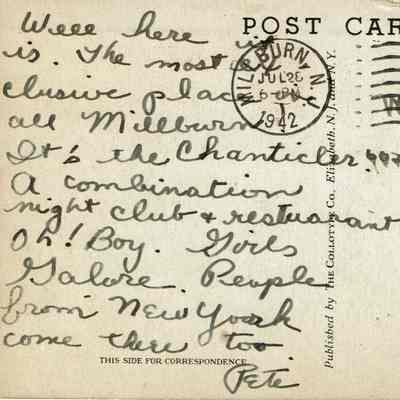 POST CAR
Weee here it
is. The most ex
clusive place
all Millburn
It's the Chanticler.
A combination
night club & restuarant
Oh! Boy. Girls
Galore. People
from New York
come there too
Pete
MILLBURN, N.
JUL 26
6-PM
1942
THIS SIDE FOR CORRESPONDENCE
Published by THE COLLOTYPE CO., Elizabeth, N. J. and N. Y.